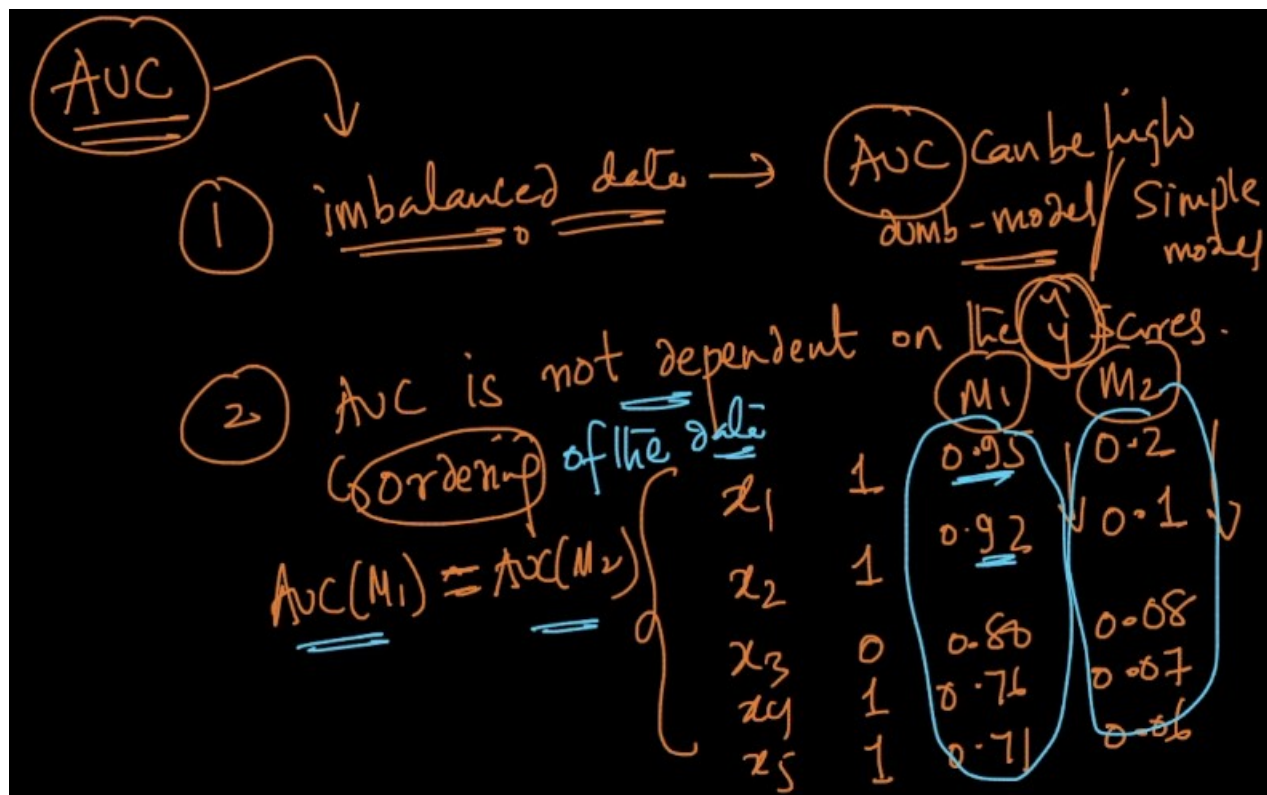 AUC
① imbalanced data → AUC can be high
dumb-model / Simple
model
② AUC is not dependent on the ŷ scores.
ordering of the data
M1 M2
x1 1 0.95 0.2
x2 1 0.92 0.1
AUC(M1) = AUC(M2)
x3 0 0.80 0.08
x4 1 0.76 0.07
x5 1 0.71 0.06